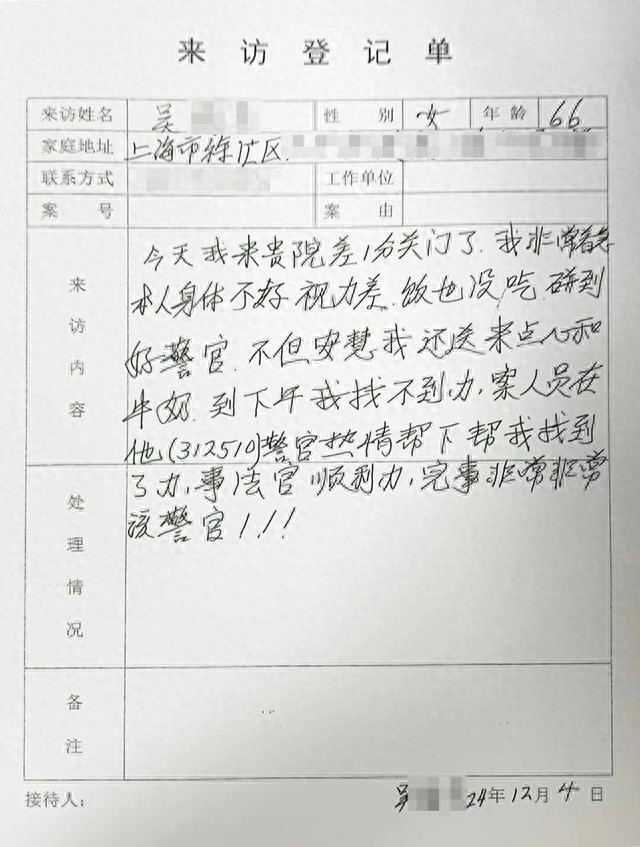 来访登记单
来访姓名 吴 性别 女 年龄 66
家庭地址 上海市徐汇区
联系方式 工作单位
案号 案由
来访内容
今天我来贵院差1分关门了.我非常着急
本人身体不好 视力差.饭也没吃.碰到
好警官.不但安慧我还送来点心和
牛奶.到下午我找不到办,案人员在
他(312510)警官热情帮下帮我找到
了办,事法官顺利办,完事非常非常
该警官!!!
处理情况
备注
接待人: 吴 24年12月4日